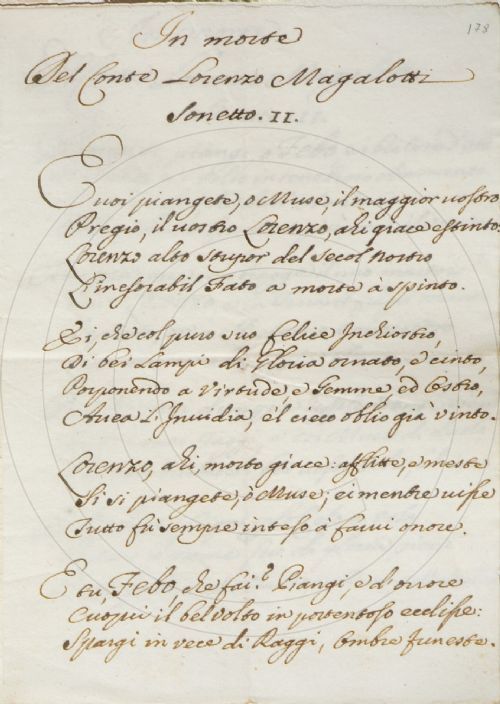 178
In morte
Del Conte Lorenzo Magalotti
Sonetto. II.
E voi piangete, ò Muse, il maggior vostro
Pregio, il vostro Lorenzo, ahi giace estinto:
Lorenzo alto stupor del secol nostro
L'inesorabil Fato a morte à spinto.
Ei, che col puro suo felice Inchiostro,
Di bei Lampi di Gloria ornato, e cinto,
Posponendo a Virtude, e Gemme, ed Ostro,
Avea l'Invidia, e'l cieco oblio già vinto.
Lorenzo, ahi, morto giace: afflitte, e meste
Si si piangete, ò Muse; ei mentre visse
Tutto fù sempre inteso à farvi onore.
E tu, Febo, che fai? Piangi, e d'orrore
Cuopri il bel volto in portentoso ecclisse:
Spargi in vece di Raggi, Ombre funeste.